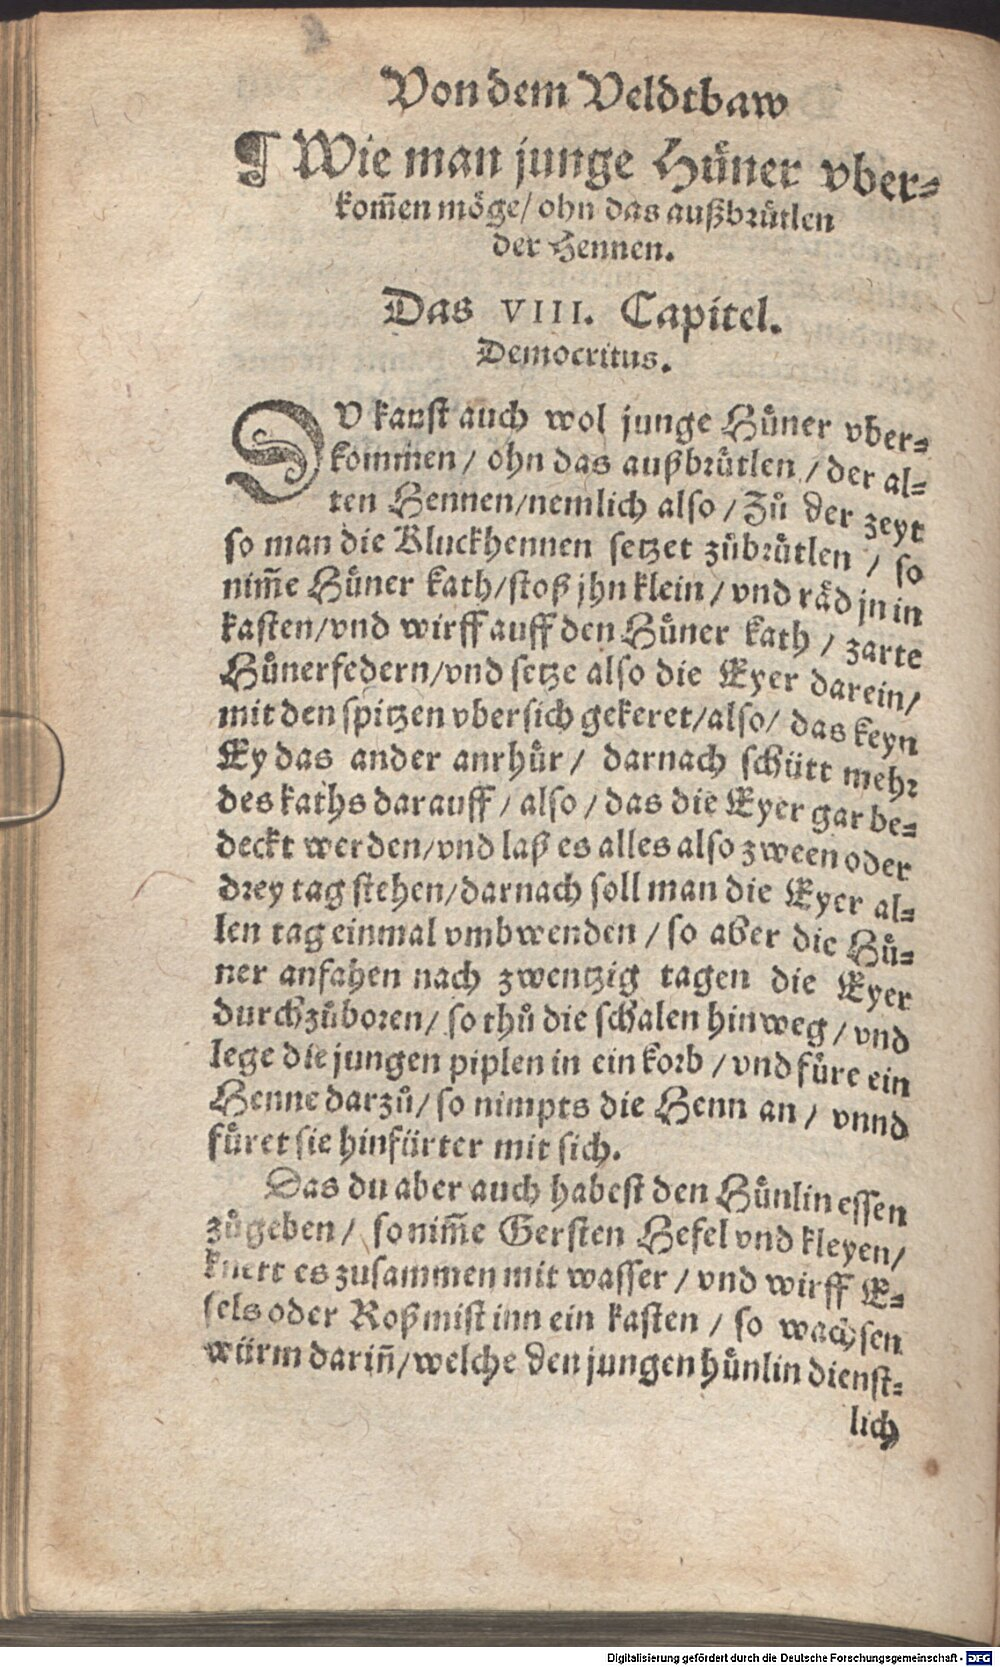 Von dem Veldtbaw
¶ Wie man junge Hůner vber⸗
kom̄en möge/ ohn das außbrůtlen
der Hennen.
Das VIII. Capitel.
Democritus.
DV kanst auch wol junge Hůner vber⸗
kommen / ohn das außbrůtlen / der al⸗
ten Hennen/nemlich also / Zů der zeyt
so man die Kluckhennen setzet zůbrůtlen / so
nim̄e Hůner kath/stoß jhn klein / vnd råd jn in
kasten/vnd wirff auff den Hůner kath / zarte
Hůnerfedern/vnd setze also die Eyer darein/
mit den spitzen vbersich gekeret/also/ das keyn
Ey das ander anrhůr / darnach schütt mehr
des kaths darauff / also / das die Eyer gar be⸗
deckt werden/vnd laß es alles also zween oder
drey tag stehen/darnach soll man die Eyer al⸗
len tag einmal vmbwenden / so aber die Hů⸗
ner anfahen nach zwentzig tagen die Eyer
durchzůboren/ so thů die schalen hinweg / vnd
lege die jungen piplen in ein korb / vnd fůre ein
Henne darzů/ so nimpts die Henn an / vnnd
fůret sie hinfürter mit sich.
Das du aber auch habest den Hůnlin essen
zůgeben / so nim̄e Gersten Hefel vnd kleyen/
knett es zusammen mit wasser / vnd wirff E⸗
sels oder Roßmist inn ein kasten / so wachsen
würm darin̄/welche den jungen hůnlin dienst⸗
lich
Digitalisierung gefördert durch die Deutsche Forschungsgemeinschaft - DFG